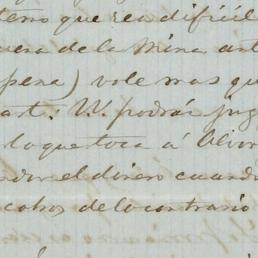 terno que sea dificil
uera de la Mina ant
pena) vale mas qu
art: V. podrá juz
lo que toca á Alvor
nder el dinero cuando
cobos de lo contrario